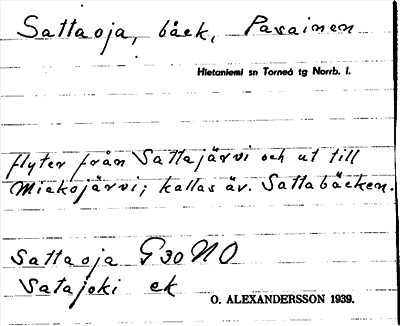 Sattaoja, bäck, Pasainen
Hietaniemi sn Torneå tg Norrb. l.
flyter från Sattajärvi och ut till
Miekojärvi; kallas äv. Sattabäcken.
Sattaoja G30NO
Satajoki ek
O. ALEXANDERSSON 1939.